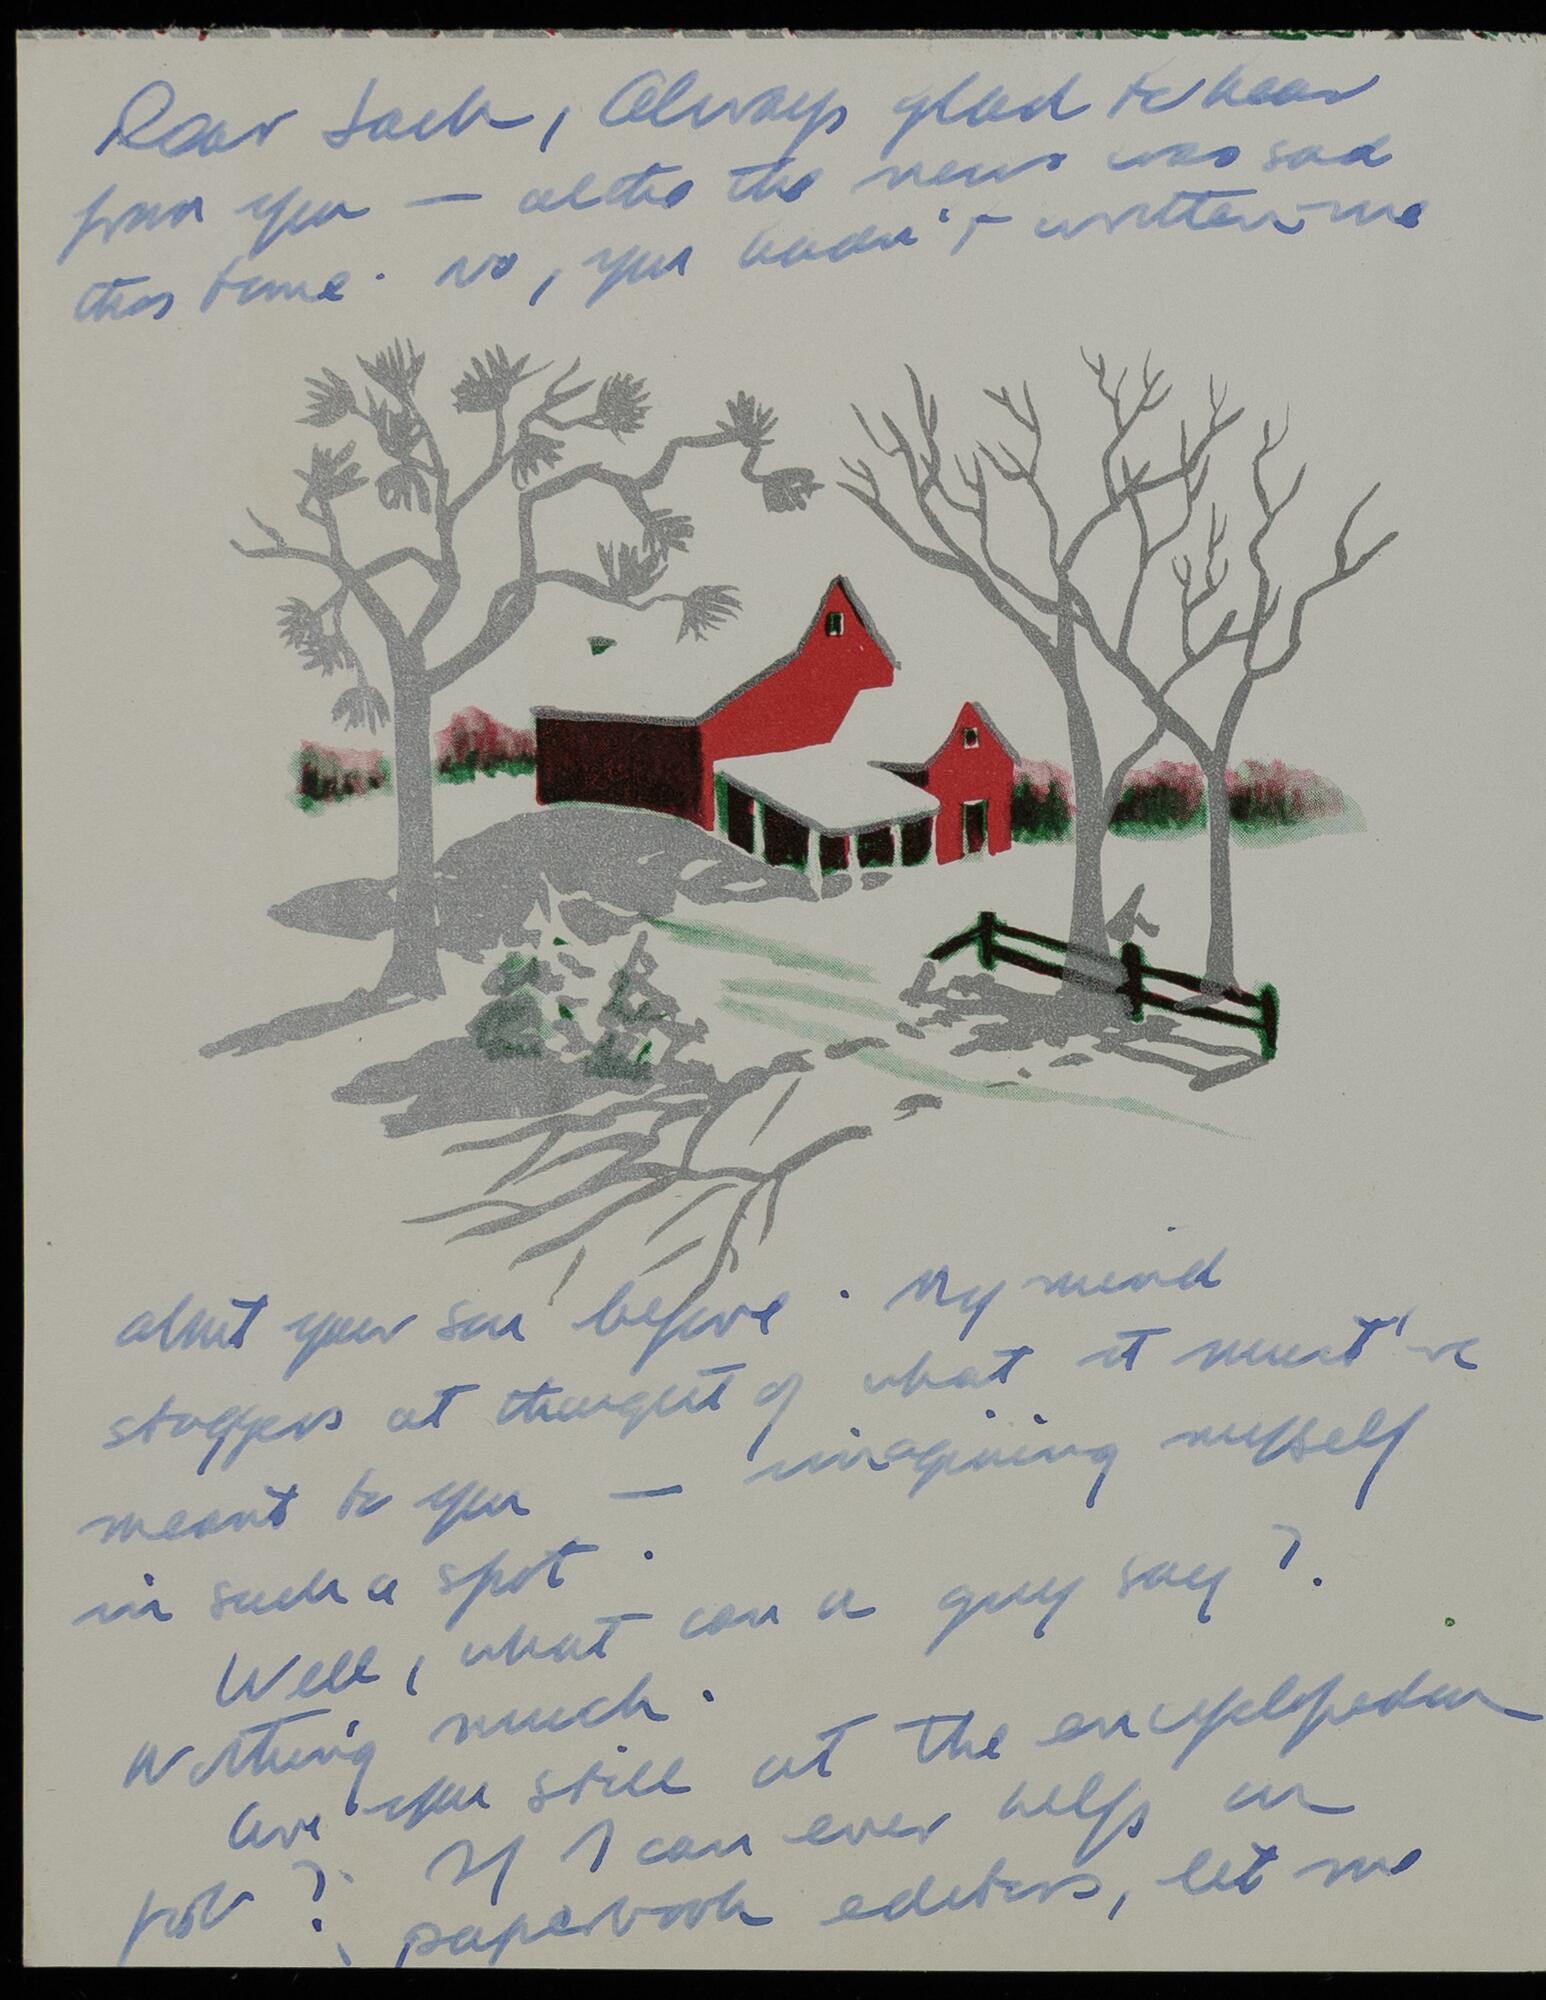 Dear Jack, Always glad to hear
from you — altho the news was sad
this time. No, you hadn't written me
about your son before. My mind
staggers at thought of what it must've
meant to you — imagining myself
in such a spot.
Well, what can a guy say?
Nothing much.
Are you still at the encyclopedia
job? If I can ever help on
paperbook editors, let me